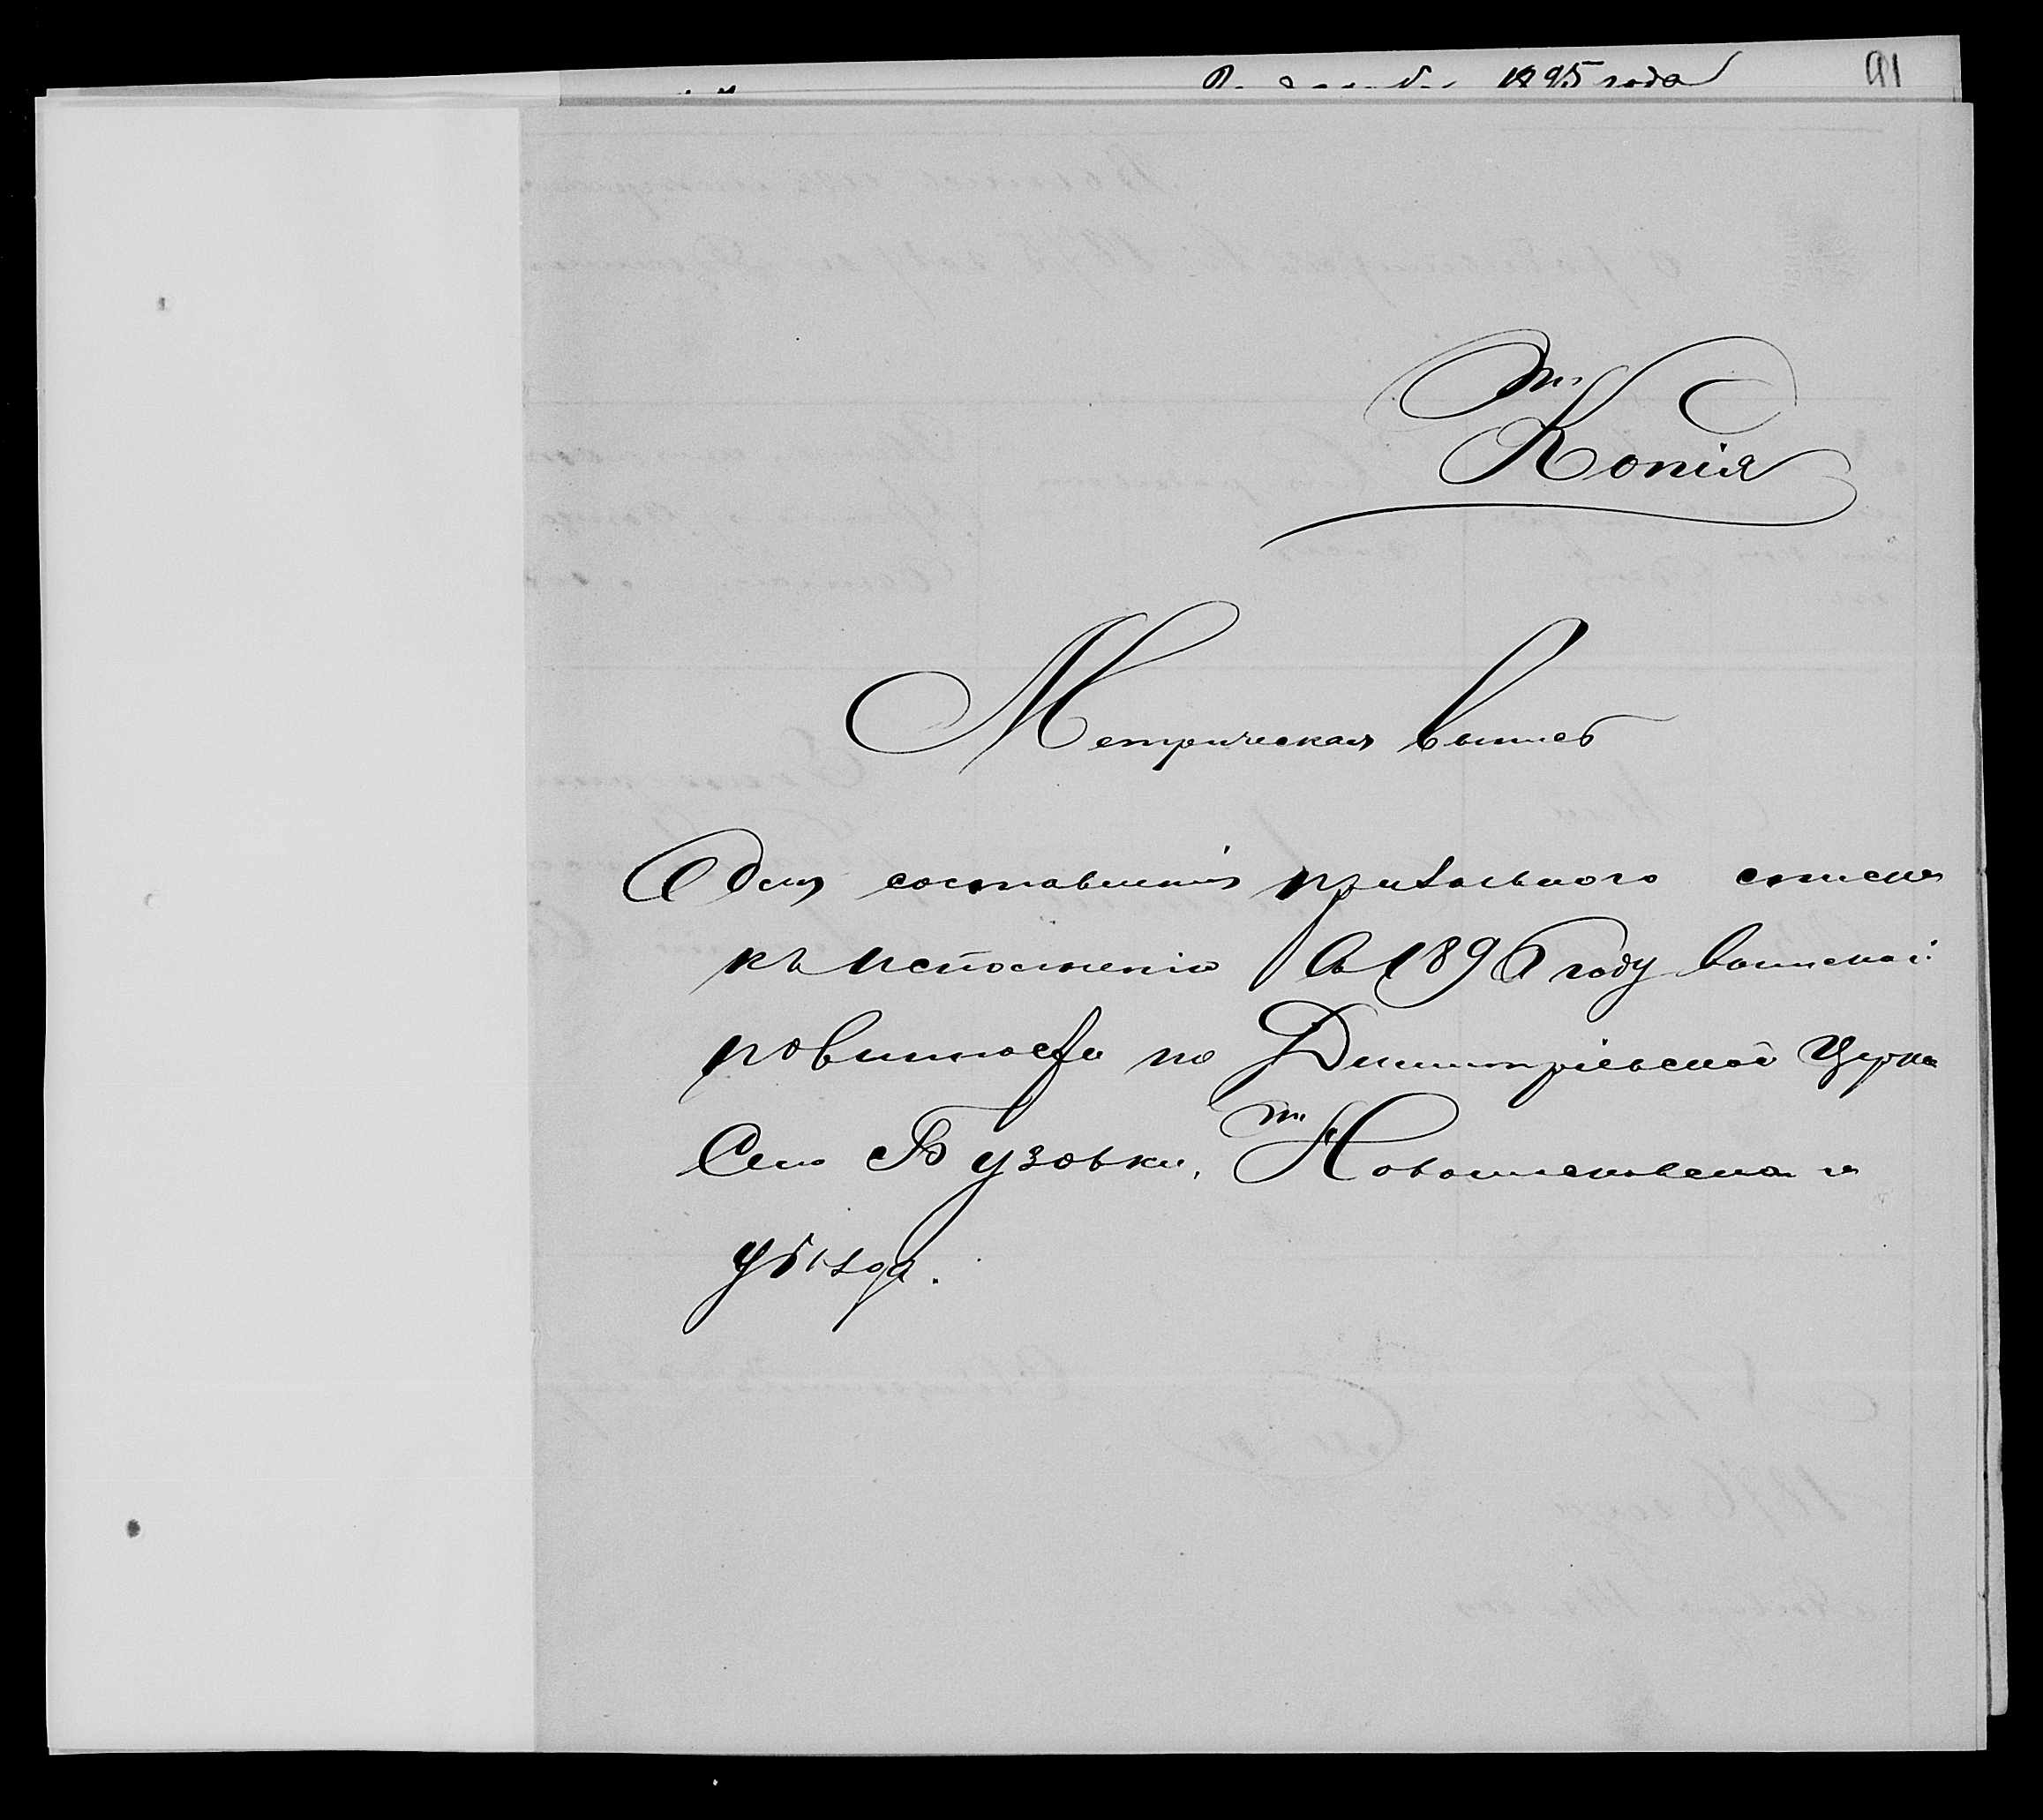 1895 года
91
Копія
Метрическая выпись
для составленія призывного списка
къ исполненію въ 1896 году воинской
повинности по Димитріевской Церкви
Села Бузовки, Новомосковскаго
уѣзда.